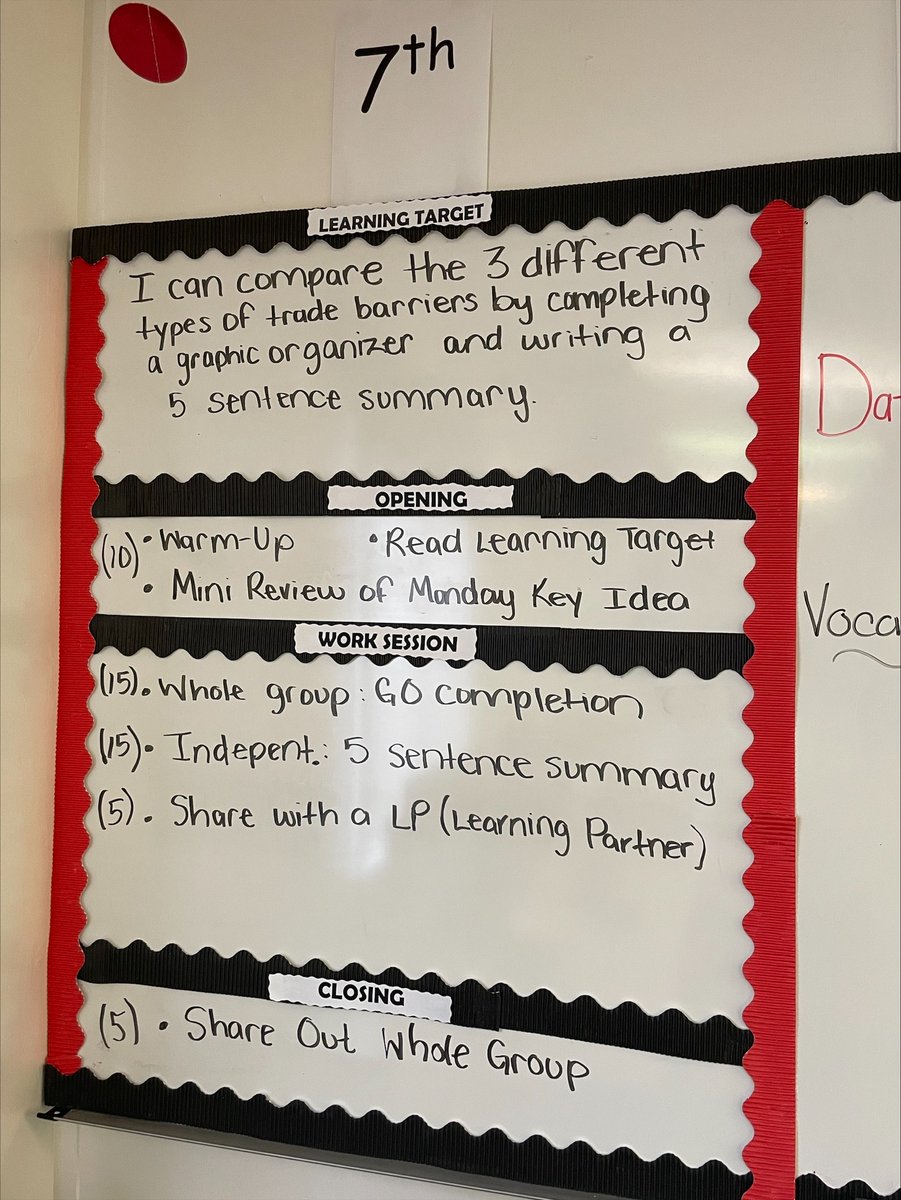 7th
LEARNING TARGET
I can compare the 3 different
types of trade barriers by completing
a graphic organizer and writing a
5 sentence summary.
OPENING
(10) • Warm-Up • Read Learning Target
• Mini Review of Monday Key Idea
WORK SESSION
(15). Whole group: GO completion
(15)• Indepent.: 5 sentence summary
(5). Share with a LP (Learning Partner)
CLOSING
(5) • Share Out Whole Group